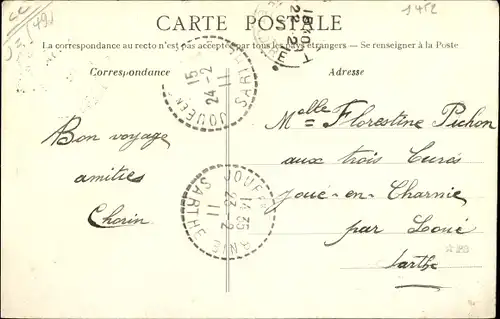 CARTE POSTALE
La correspondance au recto n'est pas acceptée par tous les pays étrangers — Se renseigner à la Poste
Correspondance
Adresse
Bon voyage
amitiés
Chorin
Melle Florestine Pichon
aux trois Curés
Joué-en-Charnie
par Loué
Sarthe
15
24-2
11
SARTHE
JOUÉ EN
JOUÉ EN
14 25
23-2
11
SARTHE
1452